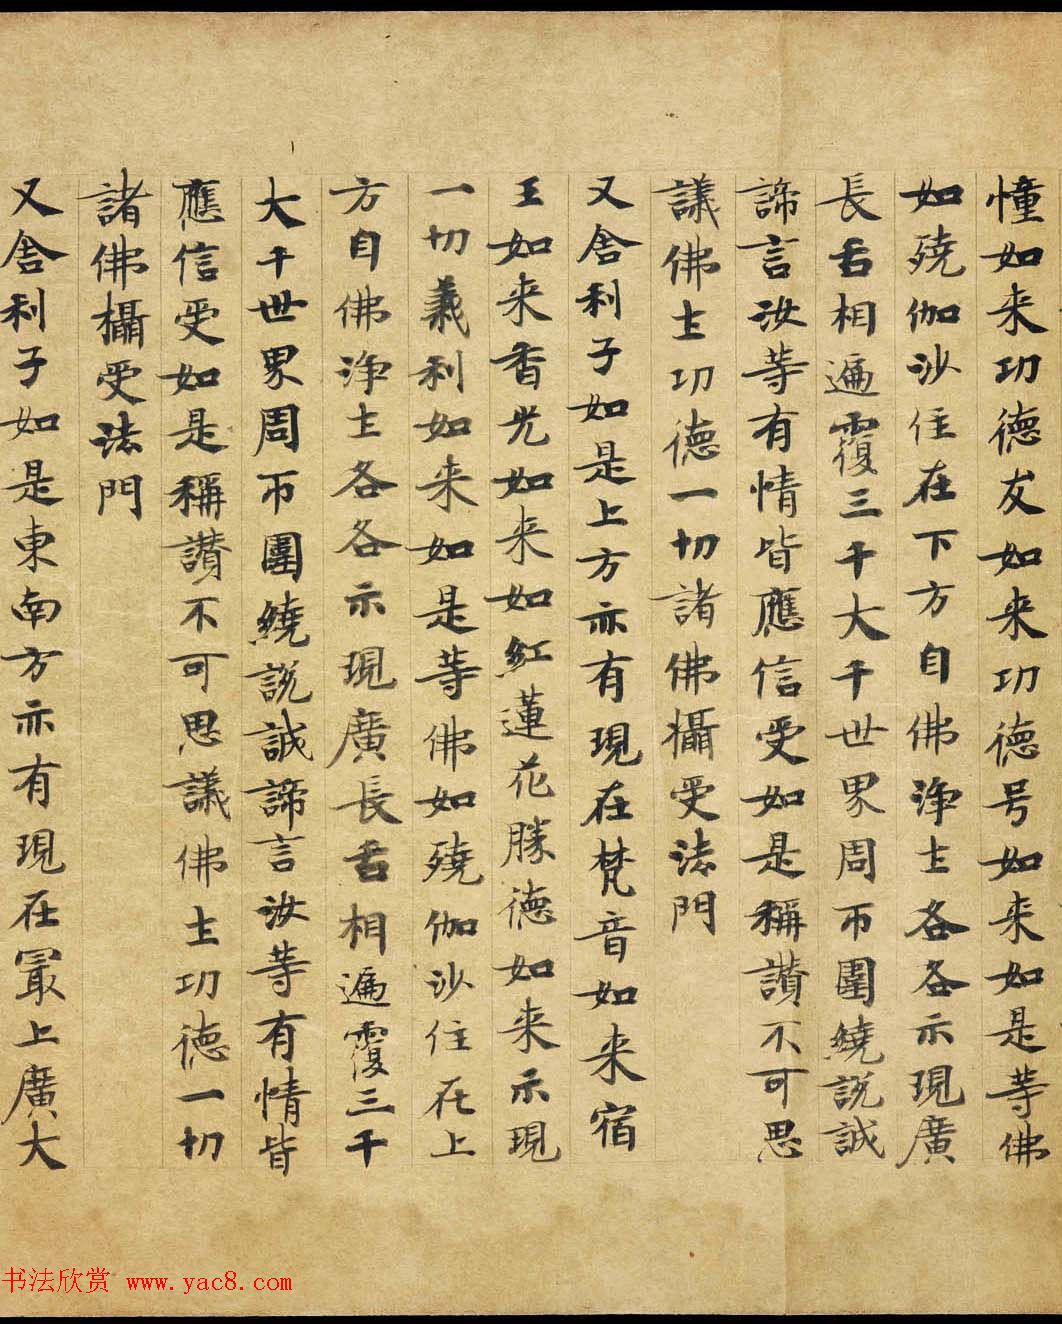 憧如来功德友如来功德号如来如是等佛
如殑伽沙住在下方自佛浄土各各示現廣
長舌相遍覆三千大千世界周帀圍繞說誠
諦言汝等有情皆應信受如是稱讃不可思
議佛土功德一切諸佛攝受法門
又舍利子如是上方亦有現在梵音如来宿
王如来香光如来如紅蓮花勝德如来示現
一切義利如来如是等佛如殑伽沙住在上
方自佛浄土各各示現廣長舌相遍覆三千
大千世界周帀圍繞說誠諦言汝等有情皆
應信受如是稱讃不可思議佛土功德一切
諸佛攝受法門
又舍利子如是東南方亦有現在冣上廣大
书法欣赏 www.yac8.com